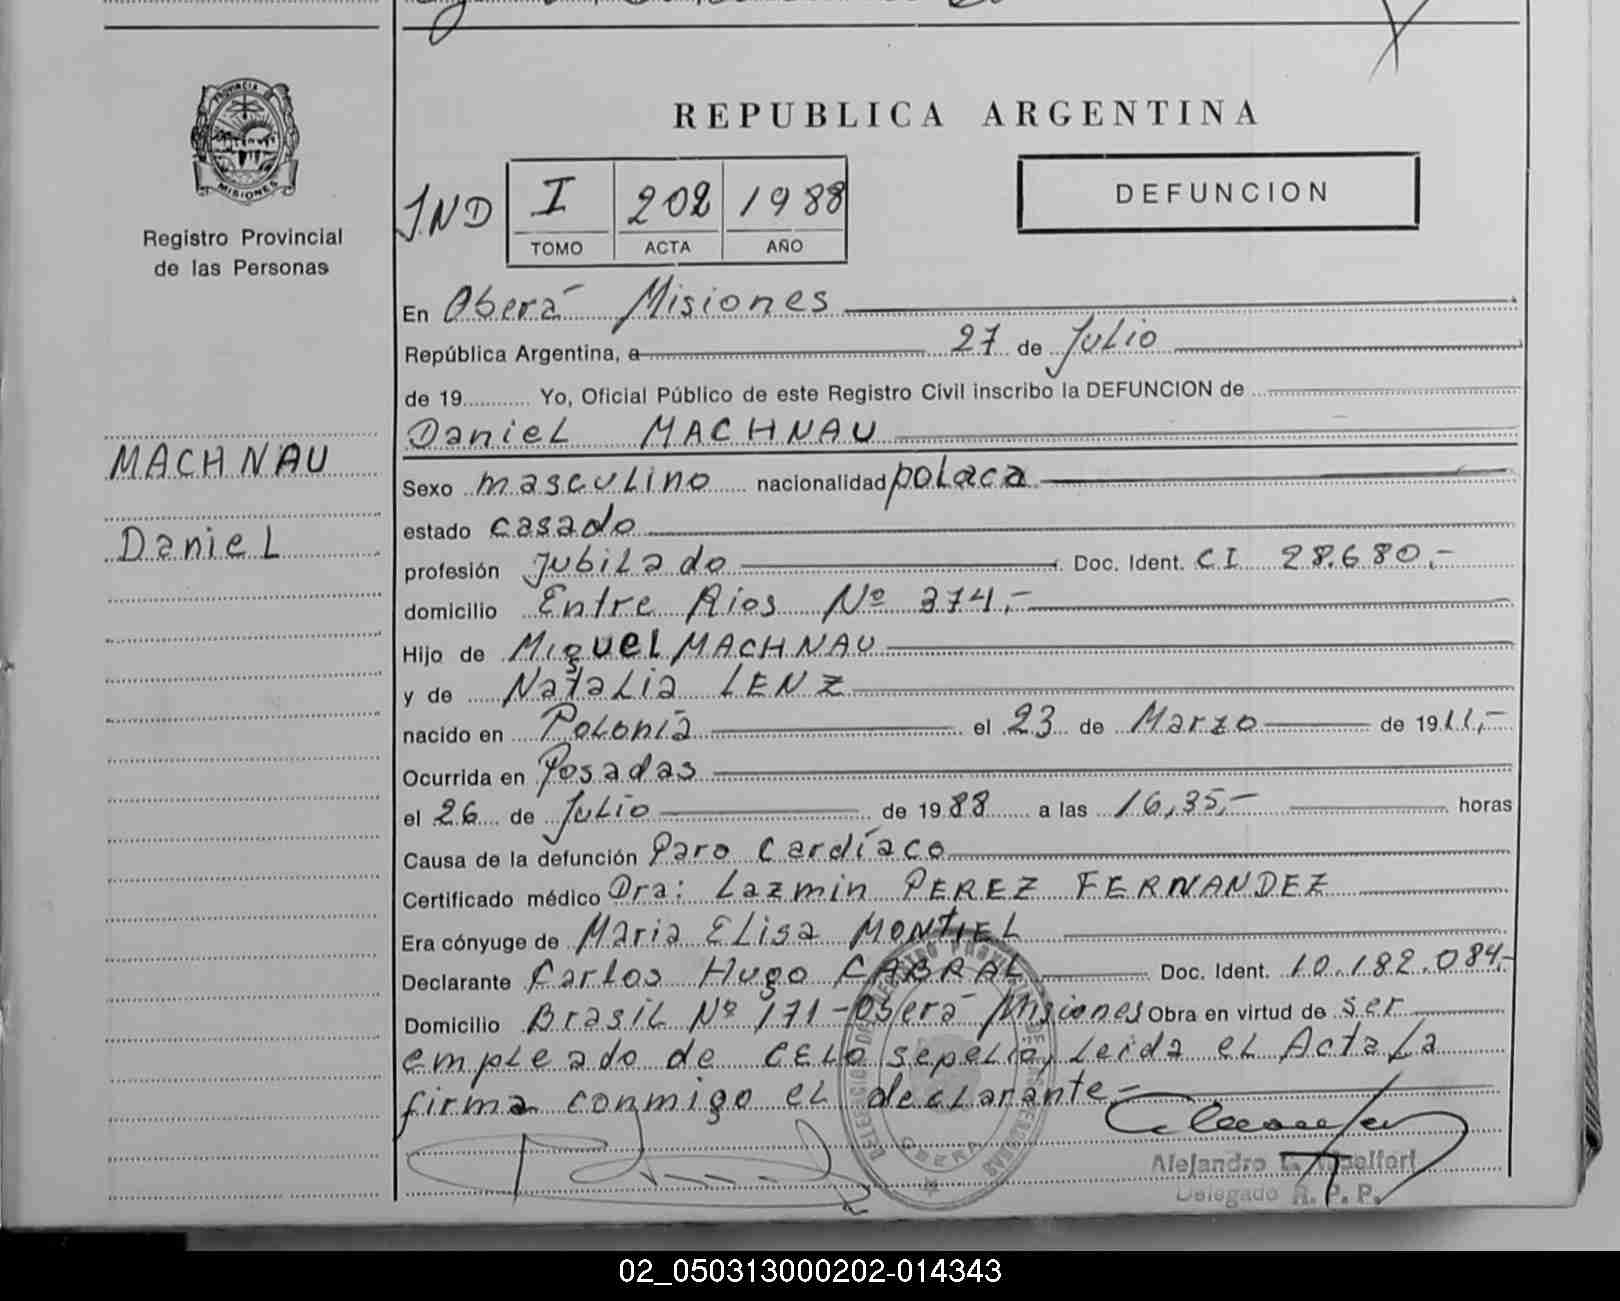 PROVINCIA DE
MISIONES
Registro Provincial
de las Personas
MACHNAU
Daniel
REPUBLICA ARGENTINA
IND
I 202 1988
TOMO ACTA AÑO
DEFUNCION
En Oberá Misiones
República Argentina, a 27 de Julio
de 19 Yo, Oficial Público de este Registro Civil inscribo la DEFUNCION de
Daniel MACHNAU
Sexo masculino nacionalidad polaca
estado casado
profesión Jubilado Doc. Ident. CI 28.680.-
domicilio Entre Rios Nº 374.-
Hijo de Miguel MACHNAU
y de Natalia LENZ
nacido en Polonia el 23 de Marzo de 1911.-
Ocurrida en Posadas
el 26 de Julio de 1988 a las 16,35.- horas
Causa de la defunción Paro Cardíaco
Certificado médico Dra: Lazmin PEREZ FERNANDEZ
Era cónyuge de Maria Elisa MONTIEL
Declarante Carlos Hugo CABRAL Doc. Ident. 10.182.084.-
Domicilio Brasil Nº 171-Oberá Misiones Obra en virtud de ser
empleado de CELO sepelio, Leida el Acta La
firma conmigo el declarante.-
OBERA
Alejandro
Delegado R. P. P.
02_050313000202-014343